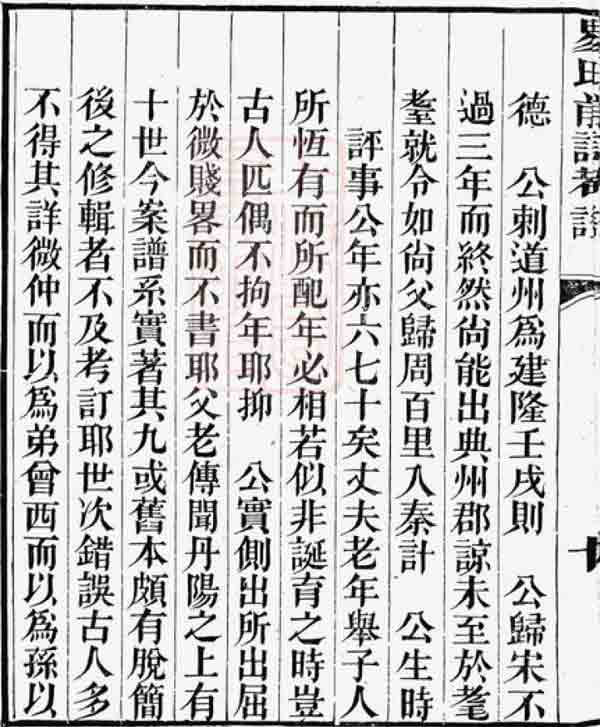 德　公刺道州爲建隆壬戌則　公歸宋不
過三年而終然尙能出典州郡諒未至於耄
耋就令如尙父歸周百里入秦計　公生時
評事公年亦六七十矣丈夫老年舉子人
所恆有而所配年必相若似非誕育之時豈
古人匹偶不拘年耶抑　公實側出所出屈
於微賤畧而不書耶父老傳聞丹陽之上有
十世今案譜系實著其九或舊本頗有脫簡
後之修輯者不及考訂耶世次錯誤古人多
不得其詳微仲而以爲弟曾西而以爲孫以